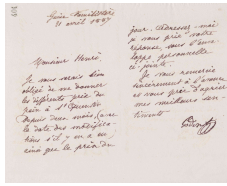 Guise Familistère
21 avril 1887
Monsieur Henrö,
Je vous serais bien
obligé de me donner
les différents prix du
pain à St Quentin
depuis deux mois, (avec
la date des modifica-
tions s'il y en a eu
ainsi que le prix du
jour. Adressez-moi
je vous prie votre
réponse, sous l'enve-
loppe personnelle
ci-jointe.
Je vous remercie
sincèrement à l'avance
et vous prie d'agréer
mes meilleurs sen-
timents
Godin